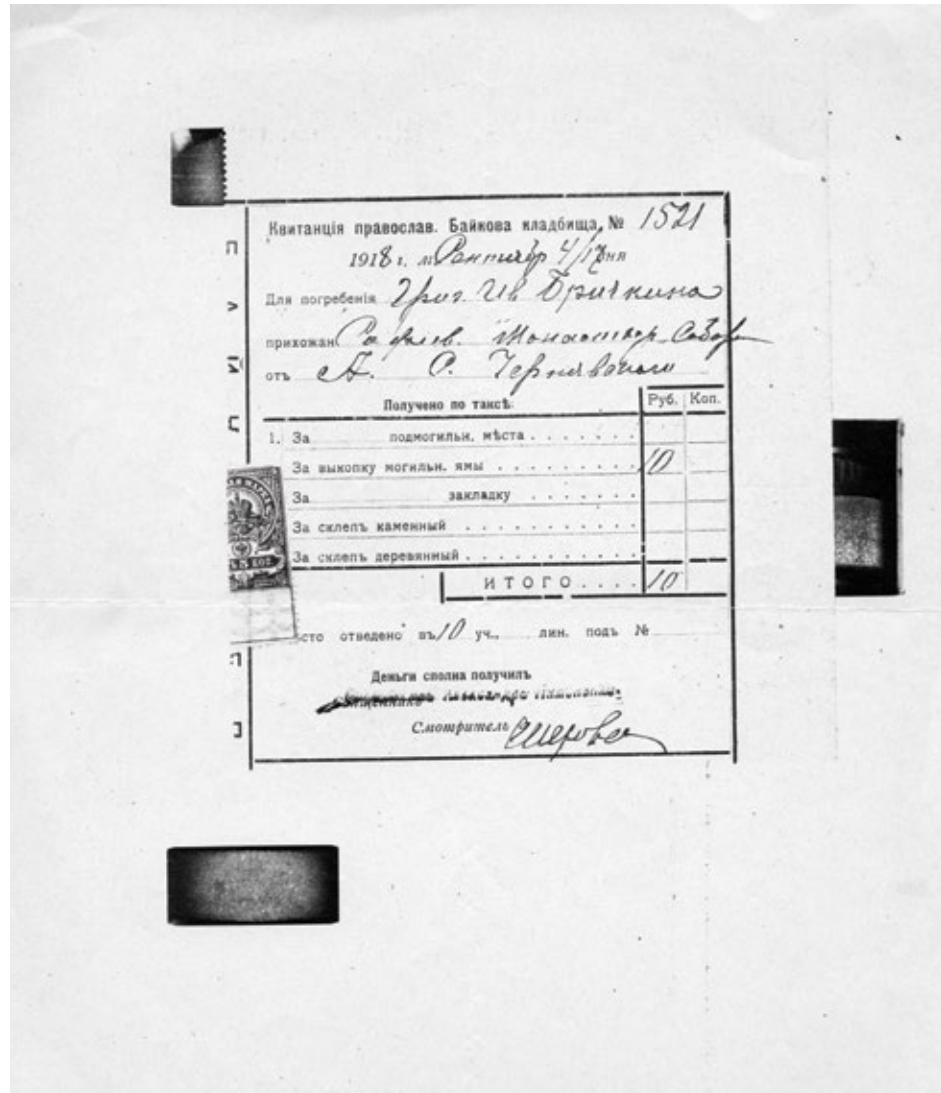 Квитанція православ. Байкова кладбища, № 1521
1918 г. м. Сентябр 4/17 дня
Для погребенія Григ. Ив Бричкина
прихожан Софіев. Монастыр. Собор
отъ А. С. Чернявскаго
Получено по таксѣ: Руб. Коп.
1. За подмогильн. мѣста . . . . . . .
За выкопку могильн. ямы . . . . . . . . . 10
За закладку . . . . . . .
За склепъ каменный . . . . . . . . . . .
За склепъ деревянный . . . . . . . . . . .
КОП.
ИТОГО . . . . 10
сто отведено въ 10 уч., лин. подъ №
Деньги сполна получилъ
Смотритель